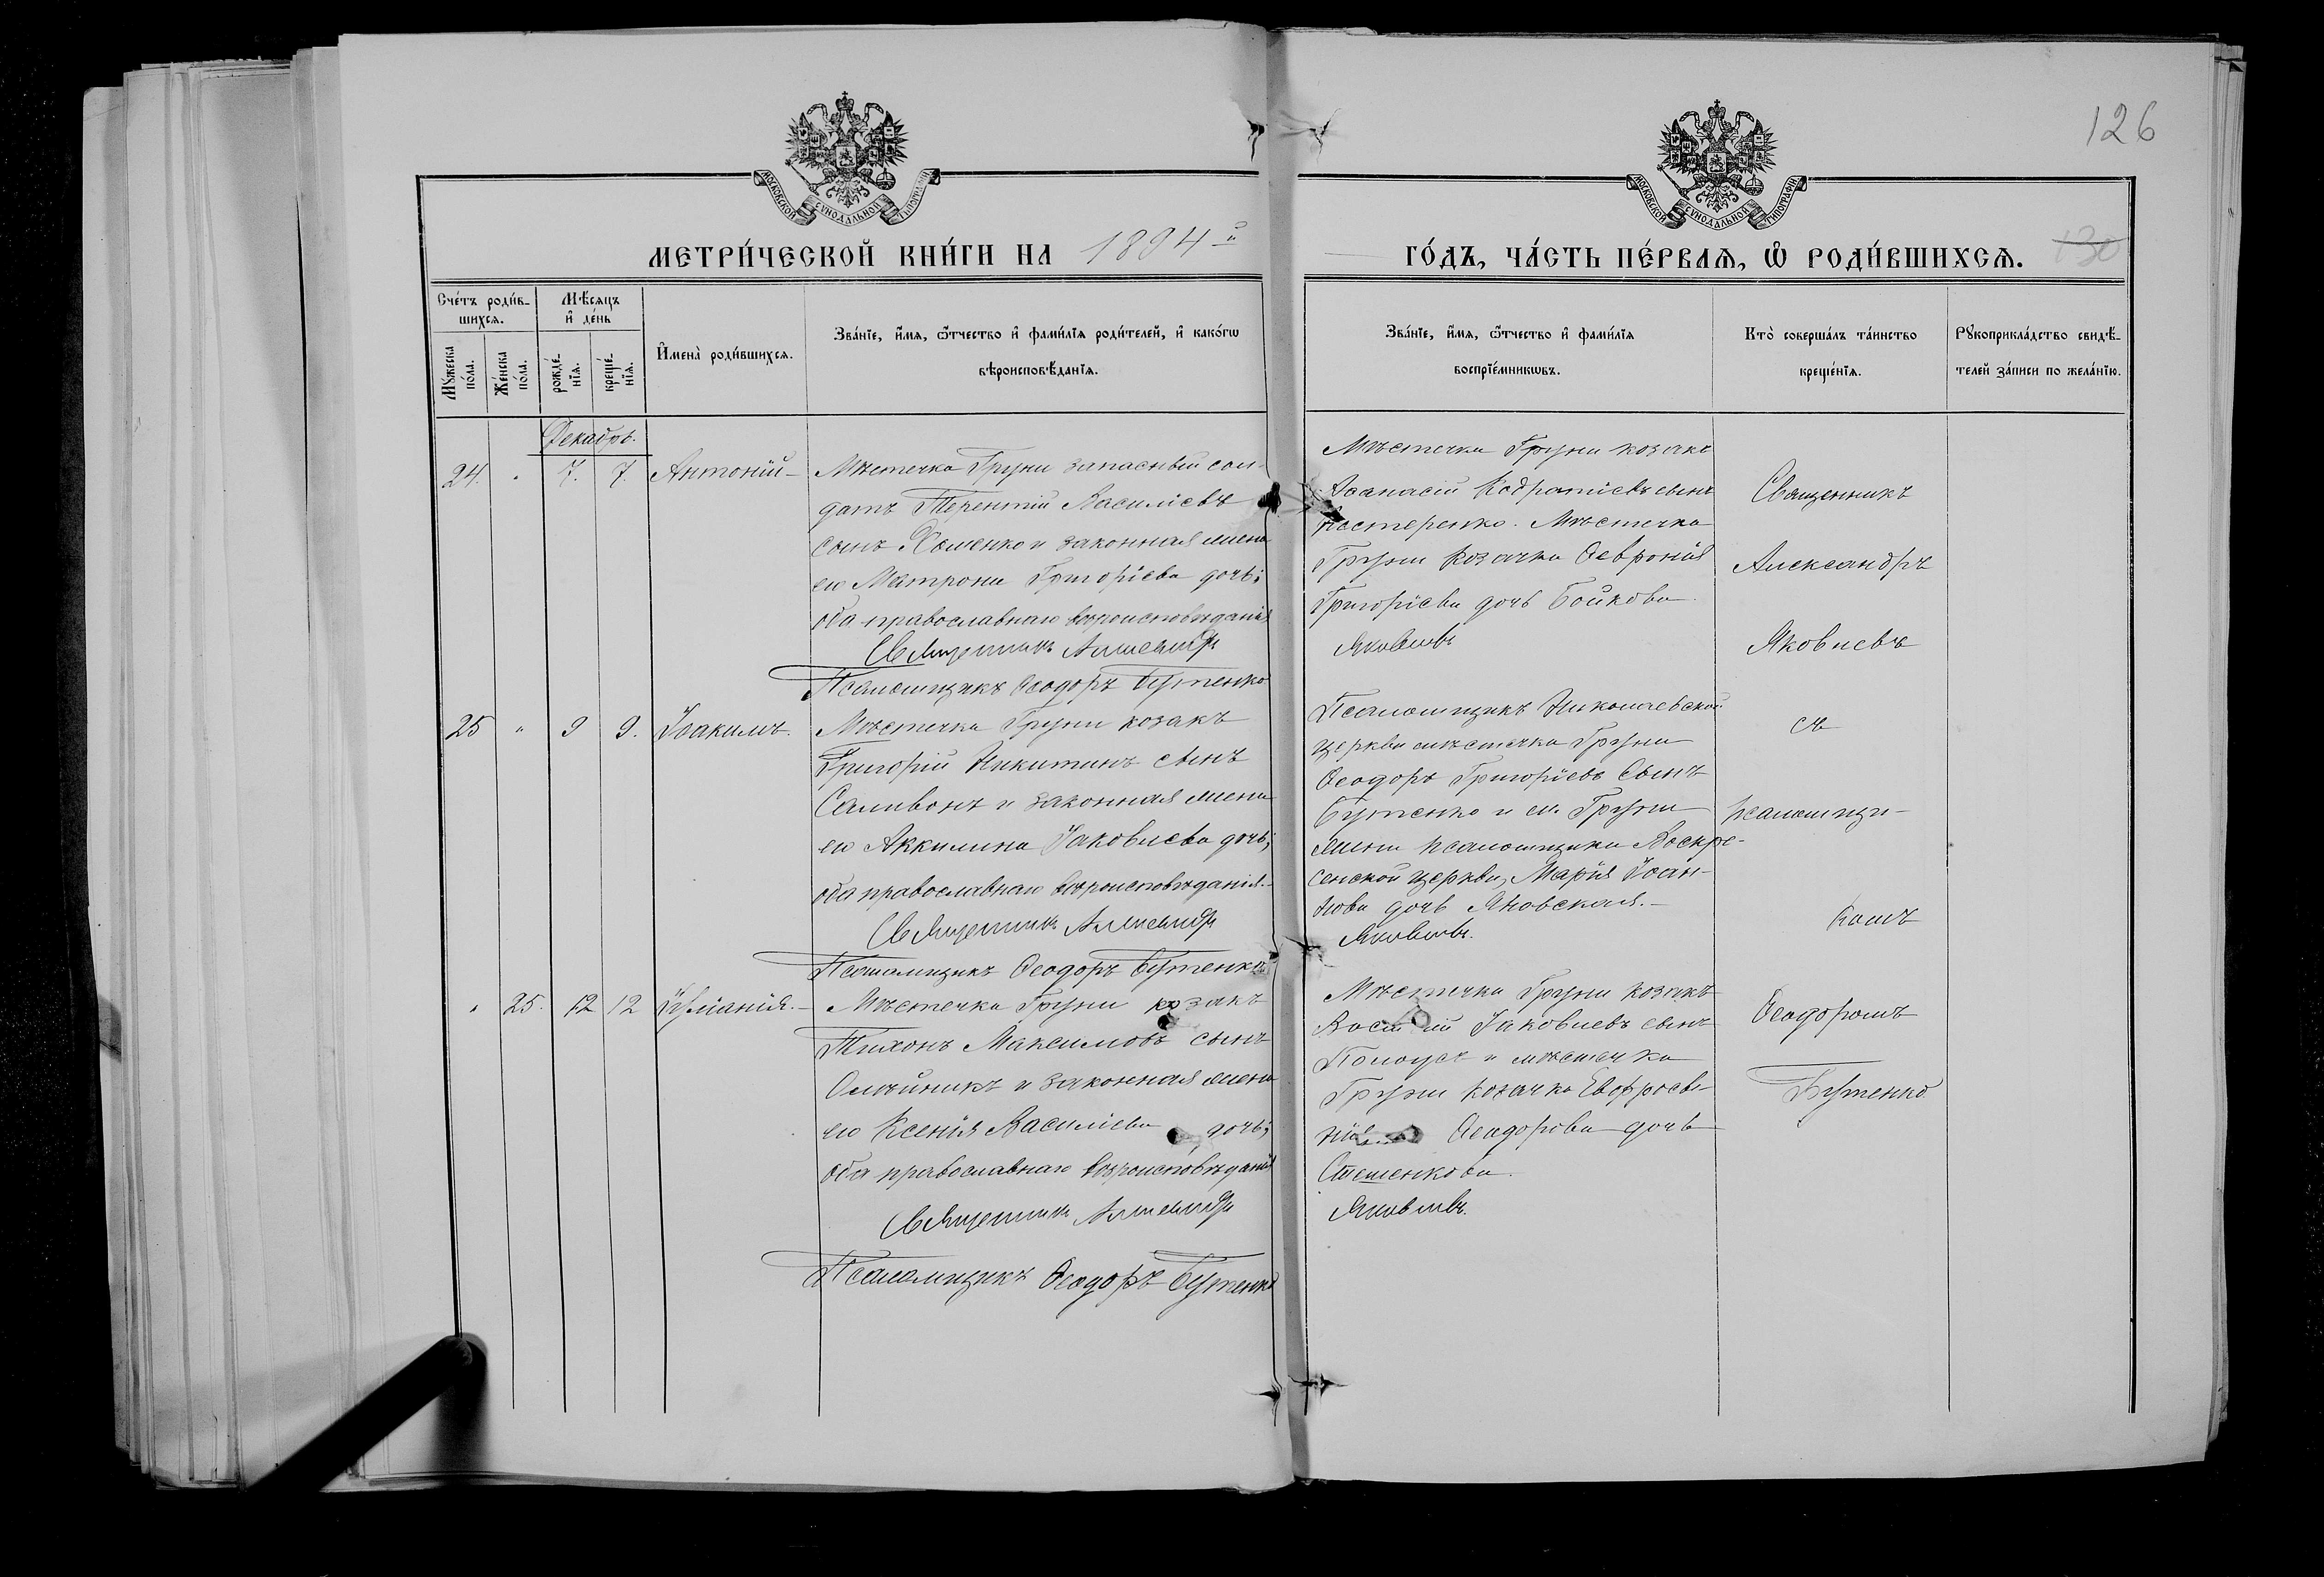 126
МОСКОВСКОЙ СѴНОДАЛЬНОЙ ТИПОГРАФІИ
МОСКОВСКОЙ СѴНОДАЛЬНОЙ ТИПОГРАФІИ
МЕТРИ́ЧЕСКОЙ КНИ́ГИ НА 1894 й
ГО́ДЪ, ЧА́СТЬ ПЕ́РВАѦ, Ѽ РОДИ́ВШИХСѦ.
130
Сче́тъ роди́в-
шихсѧ.
Мꙋжеска по́ла.
Же́нска по́ла.
Мѣ́сѧцъ
и҆ де́нь
рожде́-
нїѧ.
креще́-
нїѧ.
И҆мена̀ роди́вшихсѧ.
Зва́нїе, и҆́мѧ, ѻ҆́тчество и҆ фами́лїѧ роди́телей, и҆ како́гѡ
вѣроисповѣ́данїѧ.
Зва́нїе, и҆́мѧ, ѻ҆́тчество и҆ фами́лїѧ
воспрїе́мникѡвъ.
Кто̀ соверша́лъ та́инство
креще́нїѧ.
Рꙋкоприкла́дство свидѣ́-
телей за́писи по жела́нїю.
Декабрь.
24. " 7. 7. Антоній
Мѣстечка Груни запасный сол-
датъ Терентій Василіевъ
сынъ Хоменко и законная жена
его Матрона Григоріева дочь;
оба православнаго вѣроисповѣданія
Священникъ Александръ
Псаломщикъ Ѳеодоръ Бутенко
Мѣстечка Груни козакъ
Аѳанасій Кодратіевъ сынъ
Нестеренко. Мѣстечка
Груни козачка Ѳевронія
Григоріева дочь Бойкова.
Яковлевъ
Священникъ
Александръ
Яковлевъ
25 " 9 9. Іоакимъ.
Мѣстечка Груни козакъ
Григорій Никитинъ сынъ
Саливонъ и законная жена
его Аккилина Іаковлева дочь;
оба православнаго вѣроисповѣданія.
Священникъ Александръ
Псаломщикъ Ѳеодоръ Бутенко
Псаломщикъ Николаевской
церкви мѣстечка Груни
Ѳеодоръ Григоріевъ сынъ
Бутенко и м. Груни
жена псаломщика Воскре-
сенской церкви, Марія Іоан-
нова дочь Яновская.
Яковлевъ.
съ
псаломщи-
комъ
" 25. 12 12 Іуліанія.
Мѣстечка Груни козакъ
Тихонъ Максимовъ сынъ
Олѣйникъ и законная жена
его Ксенія Василіева дочь;
оба православнаго вѣроисповѣданія
Священникъ Александръ
Псаломщикъ Ѳеодоръ Бутенко
Мѣстечка Груни козакъ
Василій Іаковлевъ сынъ
и мѣстечка
Груни козачка Евфроси-
нія Ѳеодорова дочь
Стеменкова.
Яковлевъ.
Ѳеодоромъ
Бутенко